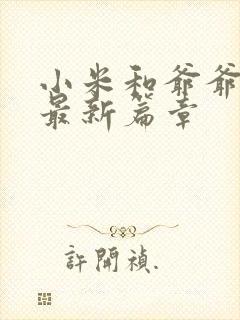 小米和爷爷
最新篇章
許開禎.